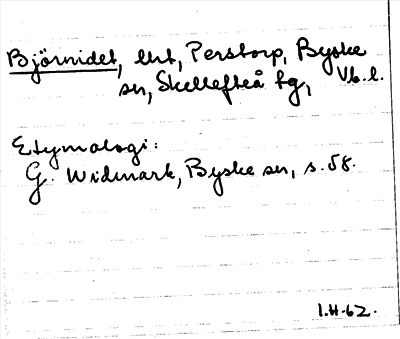 Björnidet, lht, Perstorp, Byske
sn, Skellefteå tg, Vb. l.
Etymologi:
G. Widmark, Byske sn, s. 58.
I.H-62.